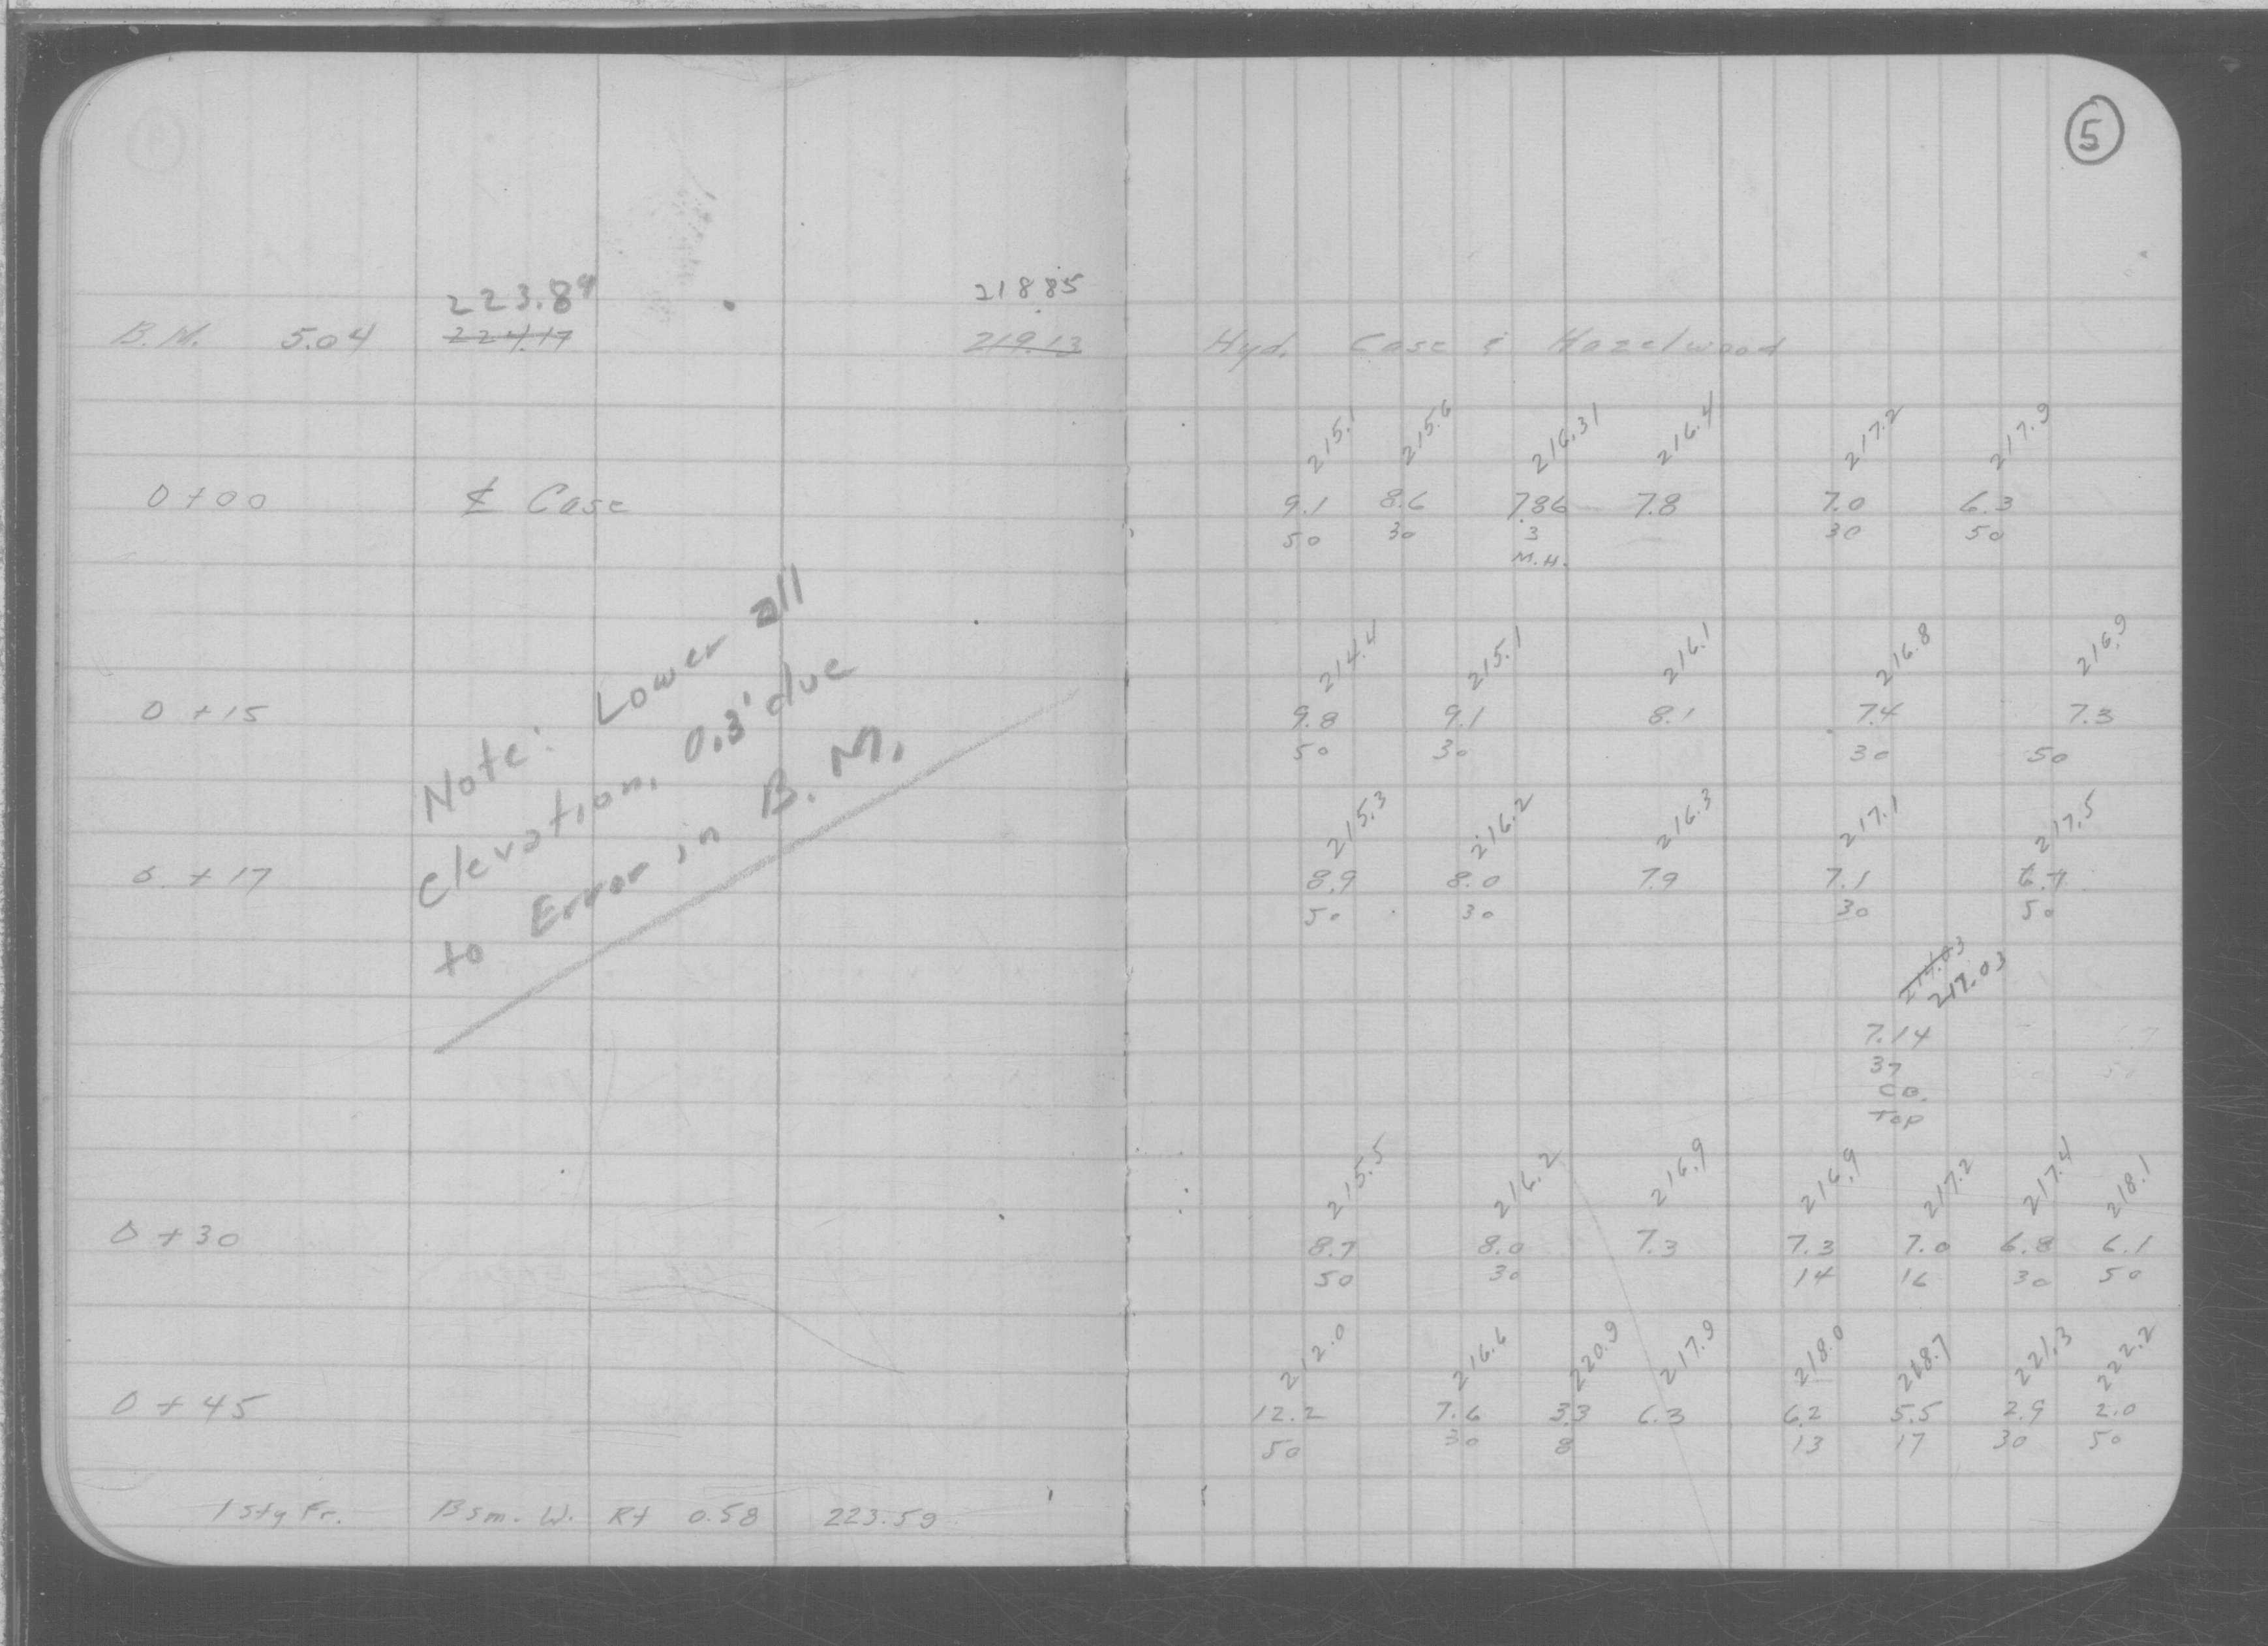 5
223.89 218.85
B.M. 5.04 224.17 219.13 Hyd. Case & Hazelwood
215.1 215.6 216.31 216.4 217.2 217.9
0+00 ℄ Case 9.1 8.6 7.86 7.8 7.0 6.3
50 30 3 30 50
M.H.
Note: Lower all
elevation, 0.3' due
to Error in B.M.
214.4 215.1 216.1 216.8 216.9
0+15 9.8 9.1 8.1 7.4 7.3
50 30 30 50
215.3 216.2 216.3 217.1 217.5
0+17 8.9 8.0 7.9 7.1 6.7
50 30 30 50
217.03
217.03
7.14
37
C.B.
Top
215.5 216.2 216.9 216.9 217.2 217.4 218.1
0+30 8.7 8.0 7.3 7.3 7.0 6.8 6.1
50 30 14 16 30 50
212.0 216.6 220.9 217.9 218.0 218.7 221.3 222.2
0+45 12.2 7.6 3.3 6.3 6.2 5.5 2.9 2.0
50 30 8 13 17 30 50
1 sty Fr. Bsm. W. Rt 0.58 223.59